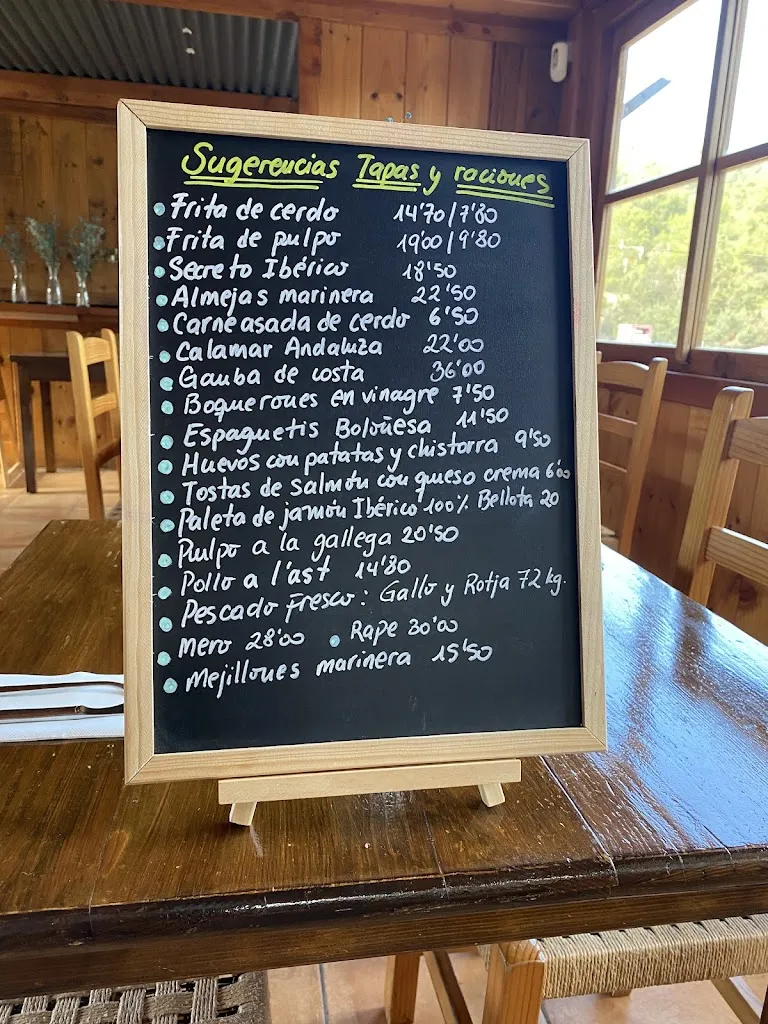 Sugerencias Tapas y raciones
Frita de cerdo 14'70/7'80
Frita de pulpo 19'00/9'80
Secreto Ibérico 18'50
Almejas marinera 22'50
Carne asada de cerdo 6'50
Calamar Andaluza 22'00
Gamba de costa 36'00
Boquerones en vinagre 7'50
Espaguetis Boloñesa 11'50
Huevos con patatas y chistorra 9'50
Tostas de salmón con queso crema 6'00
Paleta de jamón Ibérico 100% Bellota 20
Pulpo a la gallega 20'50
Pollo a l'ast 14'80
Pescado Fresco: Gallo y Rotja 72 kg.
Mero 28'00 Rape 30'00
Mejillones marinera 15'50